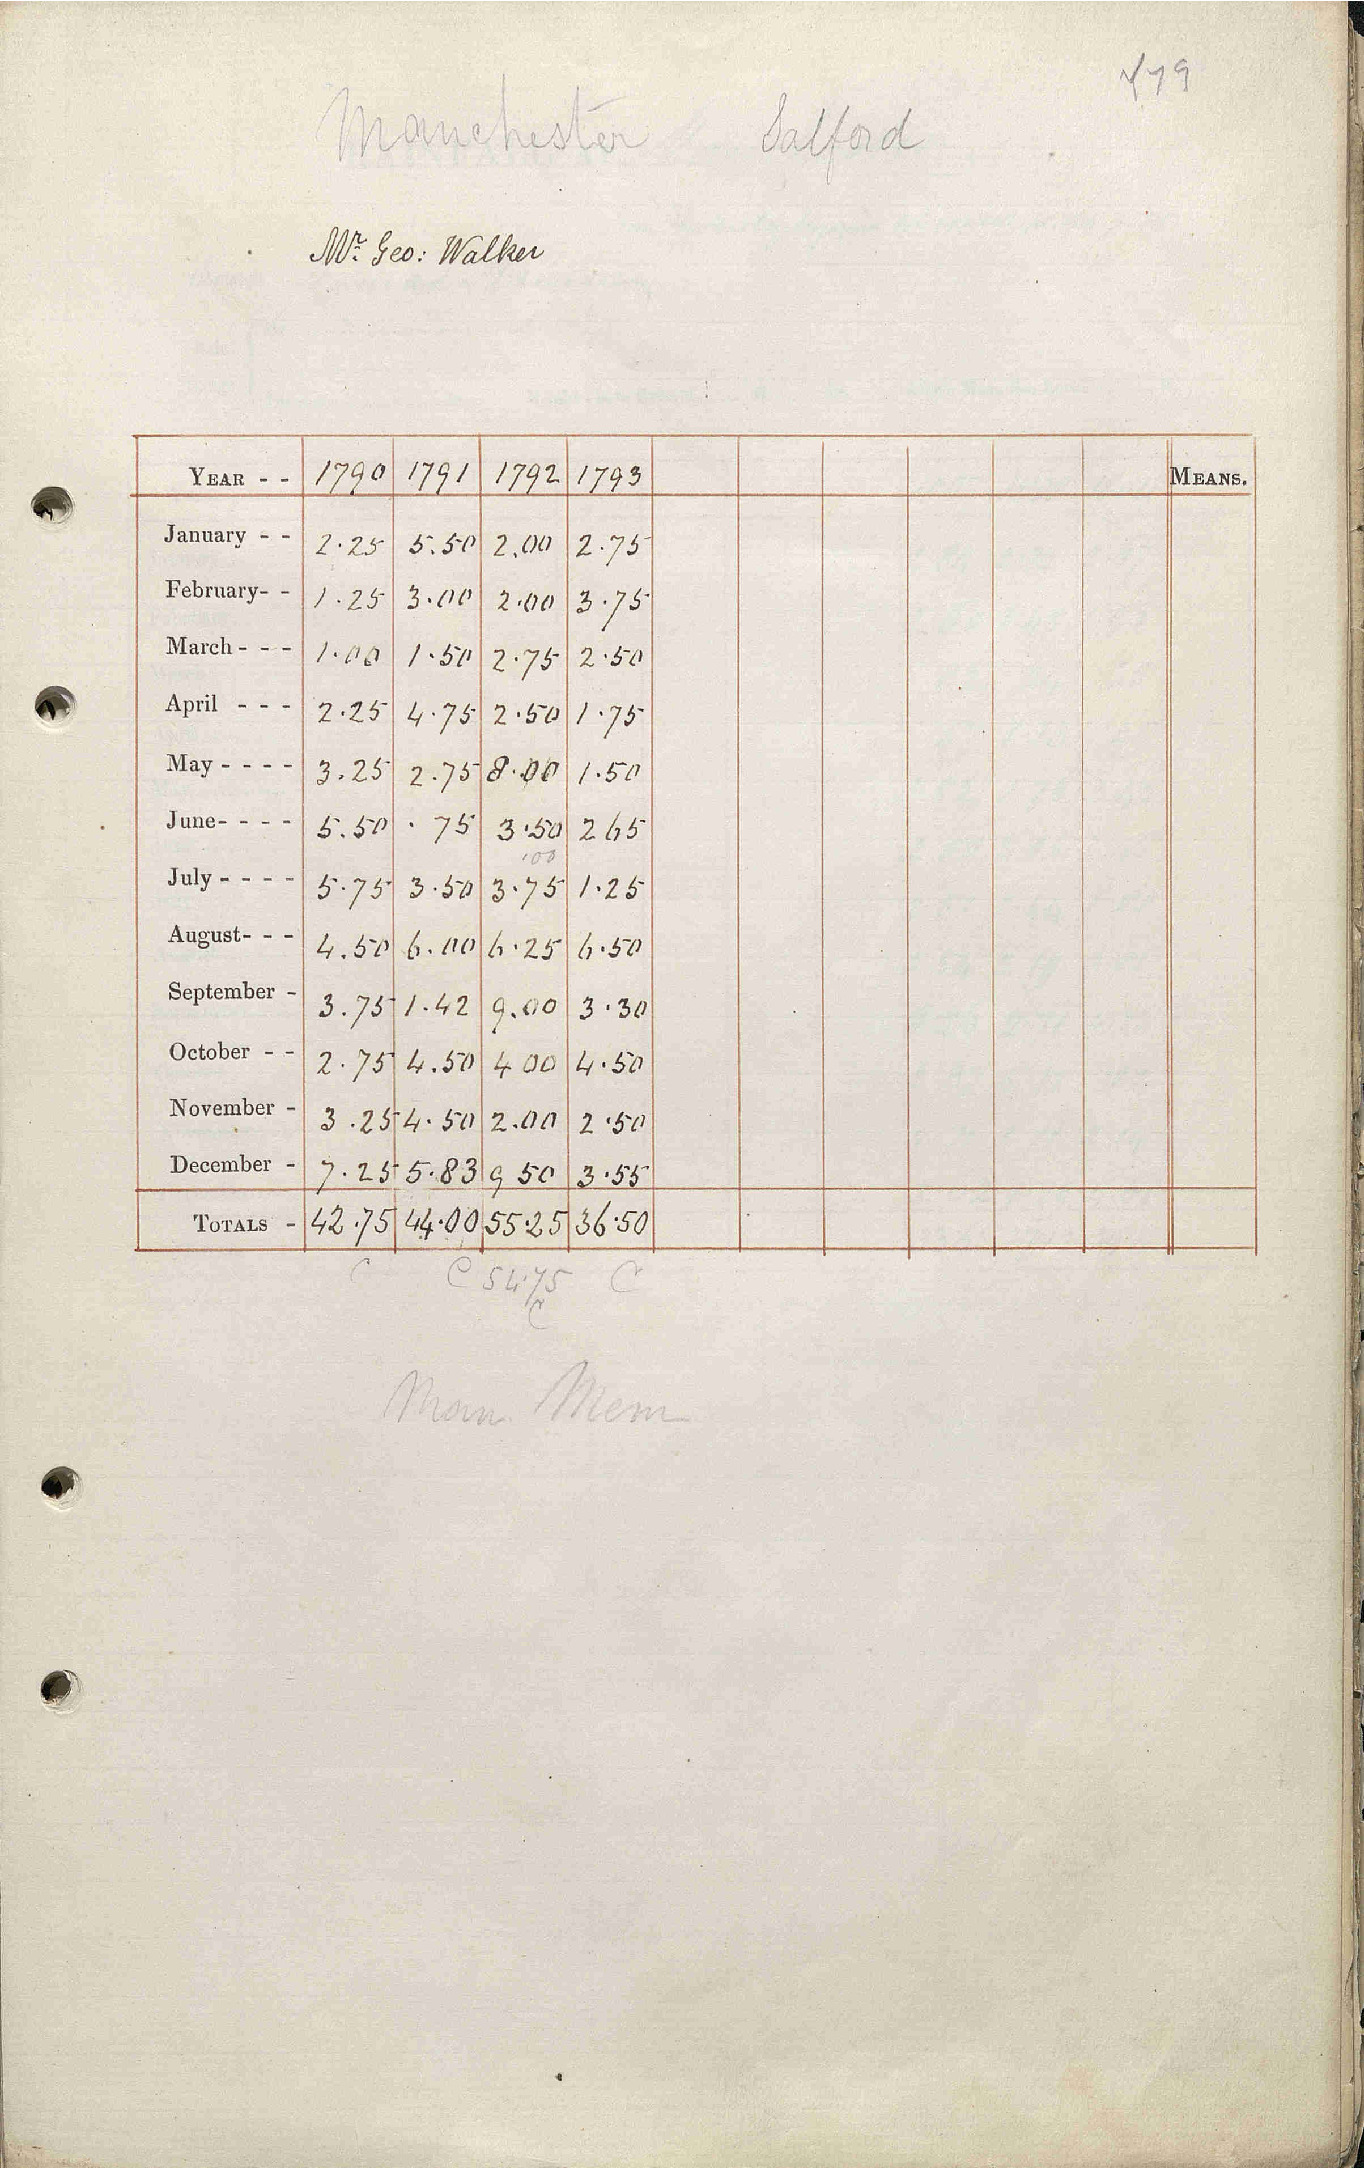 479
Manchester Salford
Mr. Geo: Walker
YEAR - - 1790 1791 1792 1793 MEANS.
January - - 2.25 5.50 2.00 2.75
February- - 1.25 3.00 2.00 3.75
March - - - 1.00 1.50 2.75 2.50
April - - - 2.25 4.75 2.50 1.75
May - - - - 3.25 2.75 8.00 1.50
June- - - - 5.50 .75 3.50 2 65
.00
July - - - - 5.75 3.50 3.75 1.25
August- - - 4.50 6.00 6.25 6.50
September - 3.75 1.42 9.00 3.30
October - - 2.75 4.50 4 00 4.50
November - 3.25 4.50 2.00 2.50
December - 7.25 5.83 9 50 3.55
TOTALS - 42.75 44.00 55.25 36.50
C C 54.75 C
C
Man. Mem